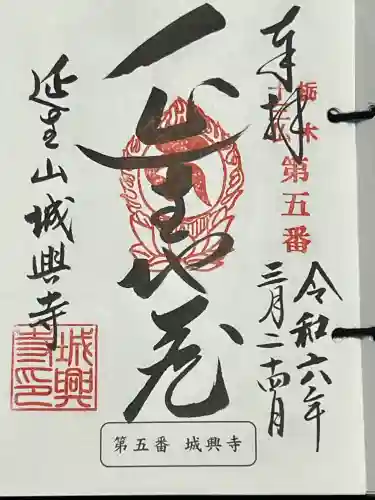 奉拝
栃木
十三仏
第五番
令和六年
三月二十四日
延生山城興寺
城興
寺印
第五番 城興寺